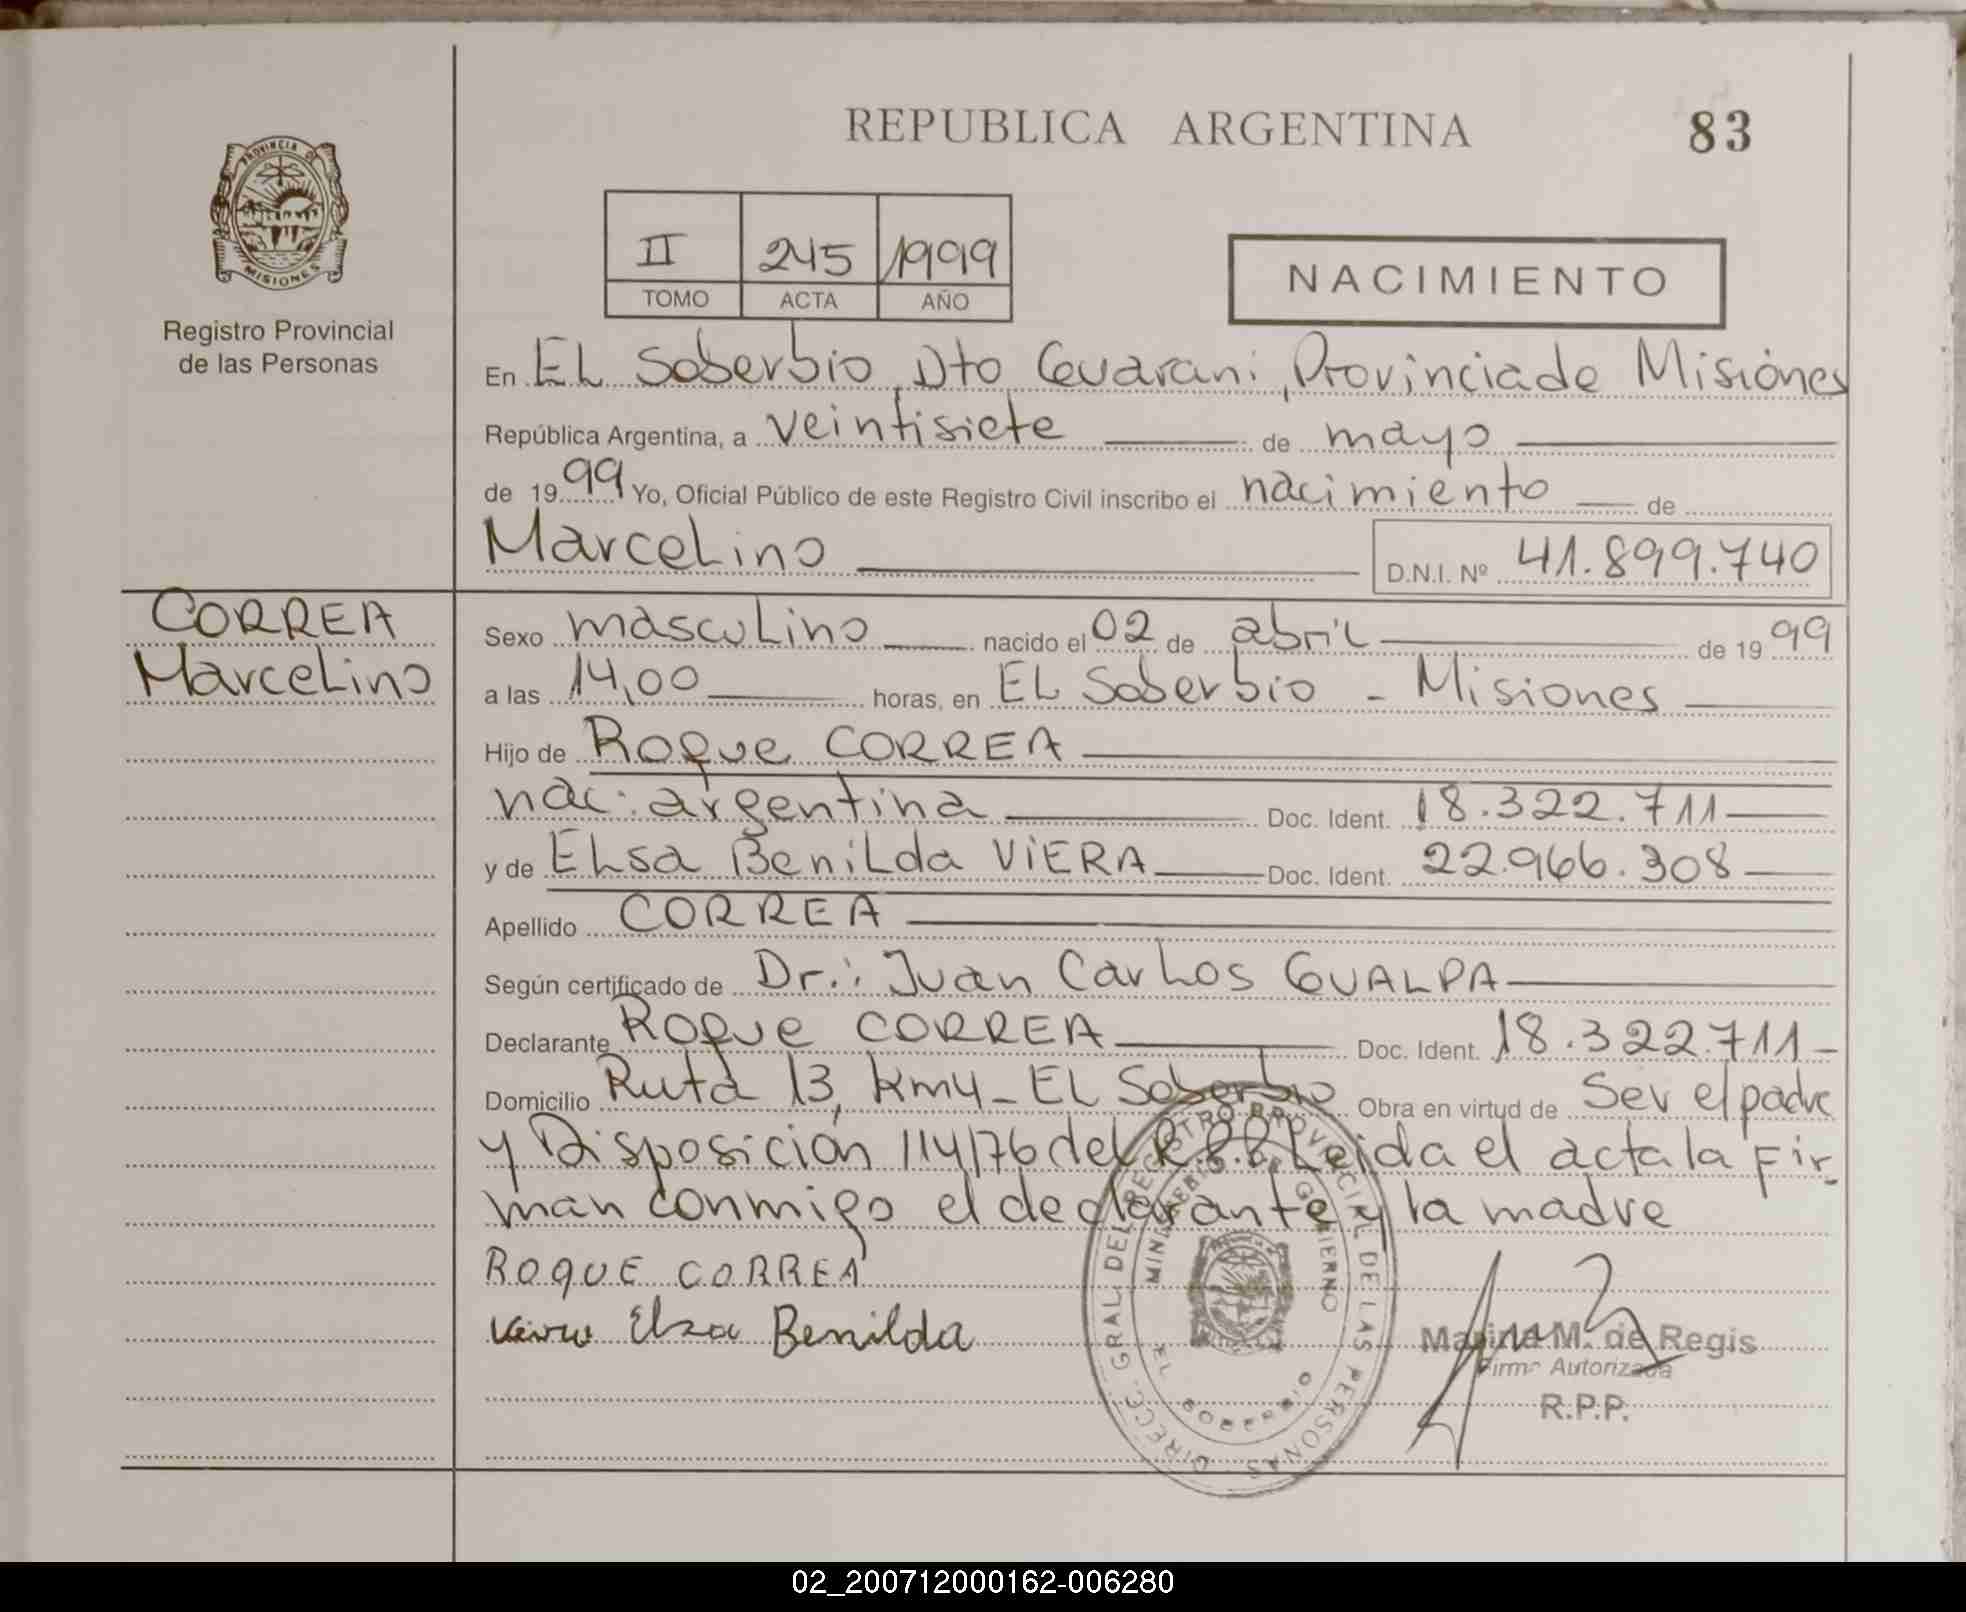 REPUBLICA ARGENTINA
83
PROVINCIA DE
MISIONES
Registro Provincial
de las Personas
II 245 1999
TOMO ACTA AÑO
NACIMIENTO
En EL Soberbio, Dto Guarani, Provincia de Misiones
República Argentina, a veintisiete de mayo
de 1999 Yo, Oficial Público de este Registro Civil inscribo el nacimiento de
Marcelino D.N.I. Nº 41.899.740
CORREA
Marcelino
Sexo masculino nacido el 02 de abril de 1999
a las 14,00 horas, en EL Soberbio - Misiones
Hijo de Roque CORREA
nac: argentina Doc. Ident. 18.322.711
y de ELsa BeniLda VIERA Doc. Ident. 22.966.308
Apellido CORREA
Según certificado de Dr.: Juan CarLos GUALPA
Declarante Roque CORREA Doc. Ident. 18.322.711
Domicilio Ruta 13, km4 - EL Soberbio Obra en virtud de Ser el padre
y Disposición 114/76 del R.P.P. Leida el acta la Fir-
man conmigo el declarante y la madre
ROQUE CORREA
Elsa Benilda
DIRECC. GRAL. DEL REGISTRO PROVINCIAL DE LAS PERSONAS
MINISTERIO DE GOBIERNO
EL SOBERBIO
Marina M. de Regis
Firma Autorizada
R.P.P.
02_200712000162-006280